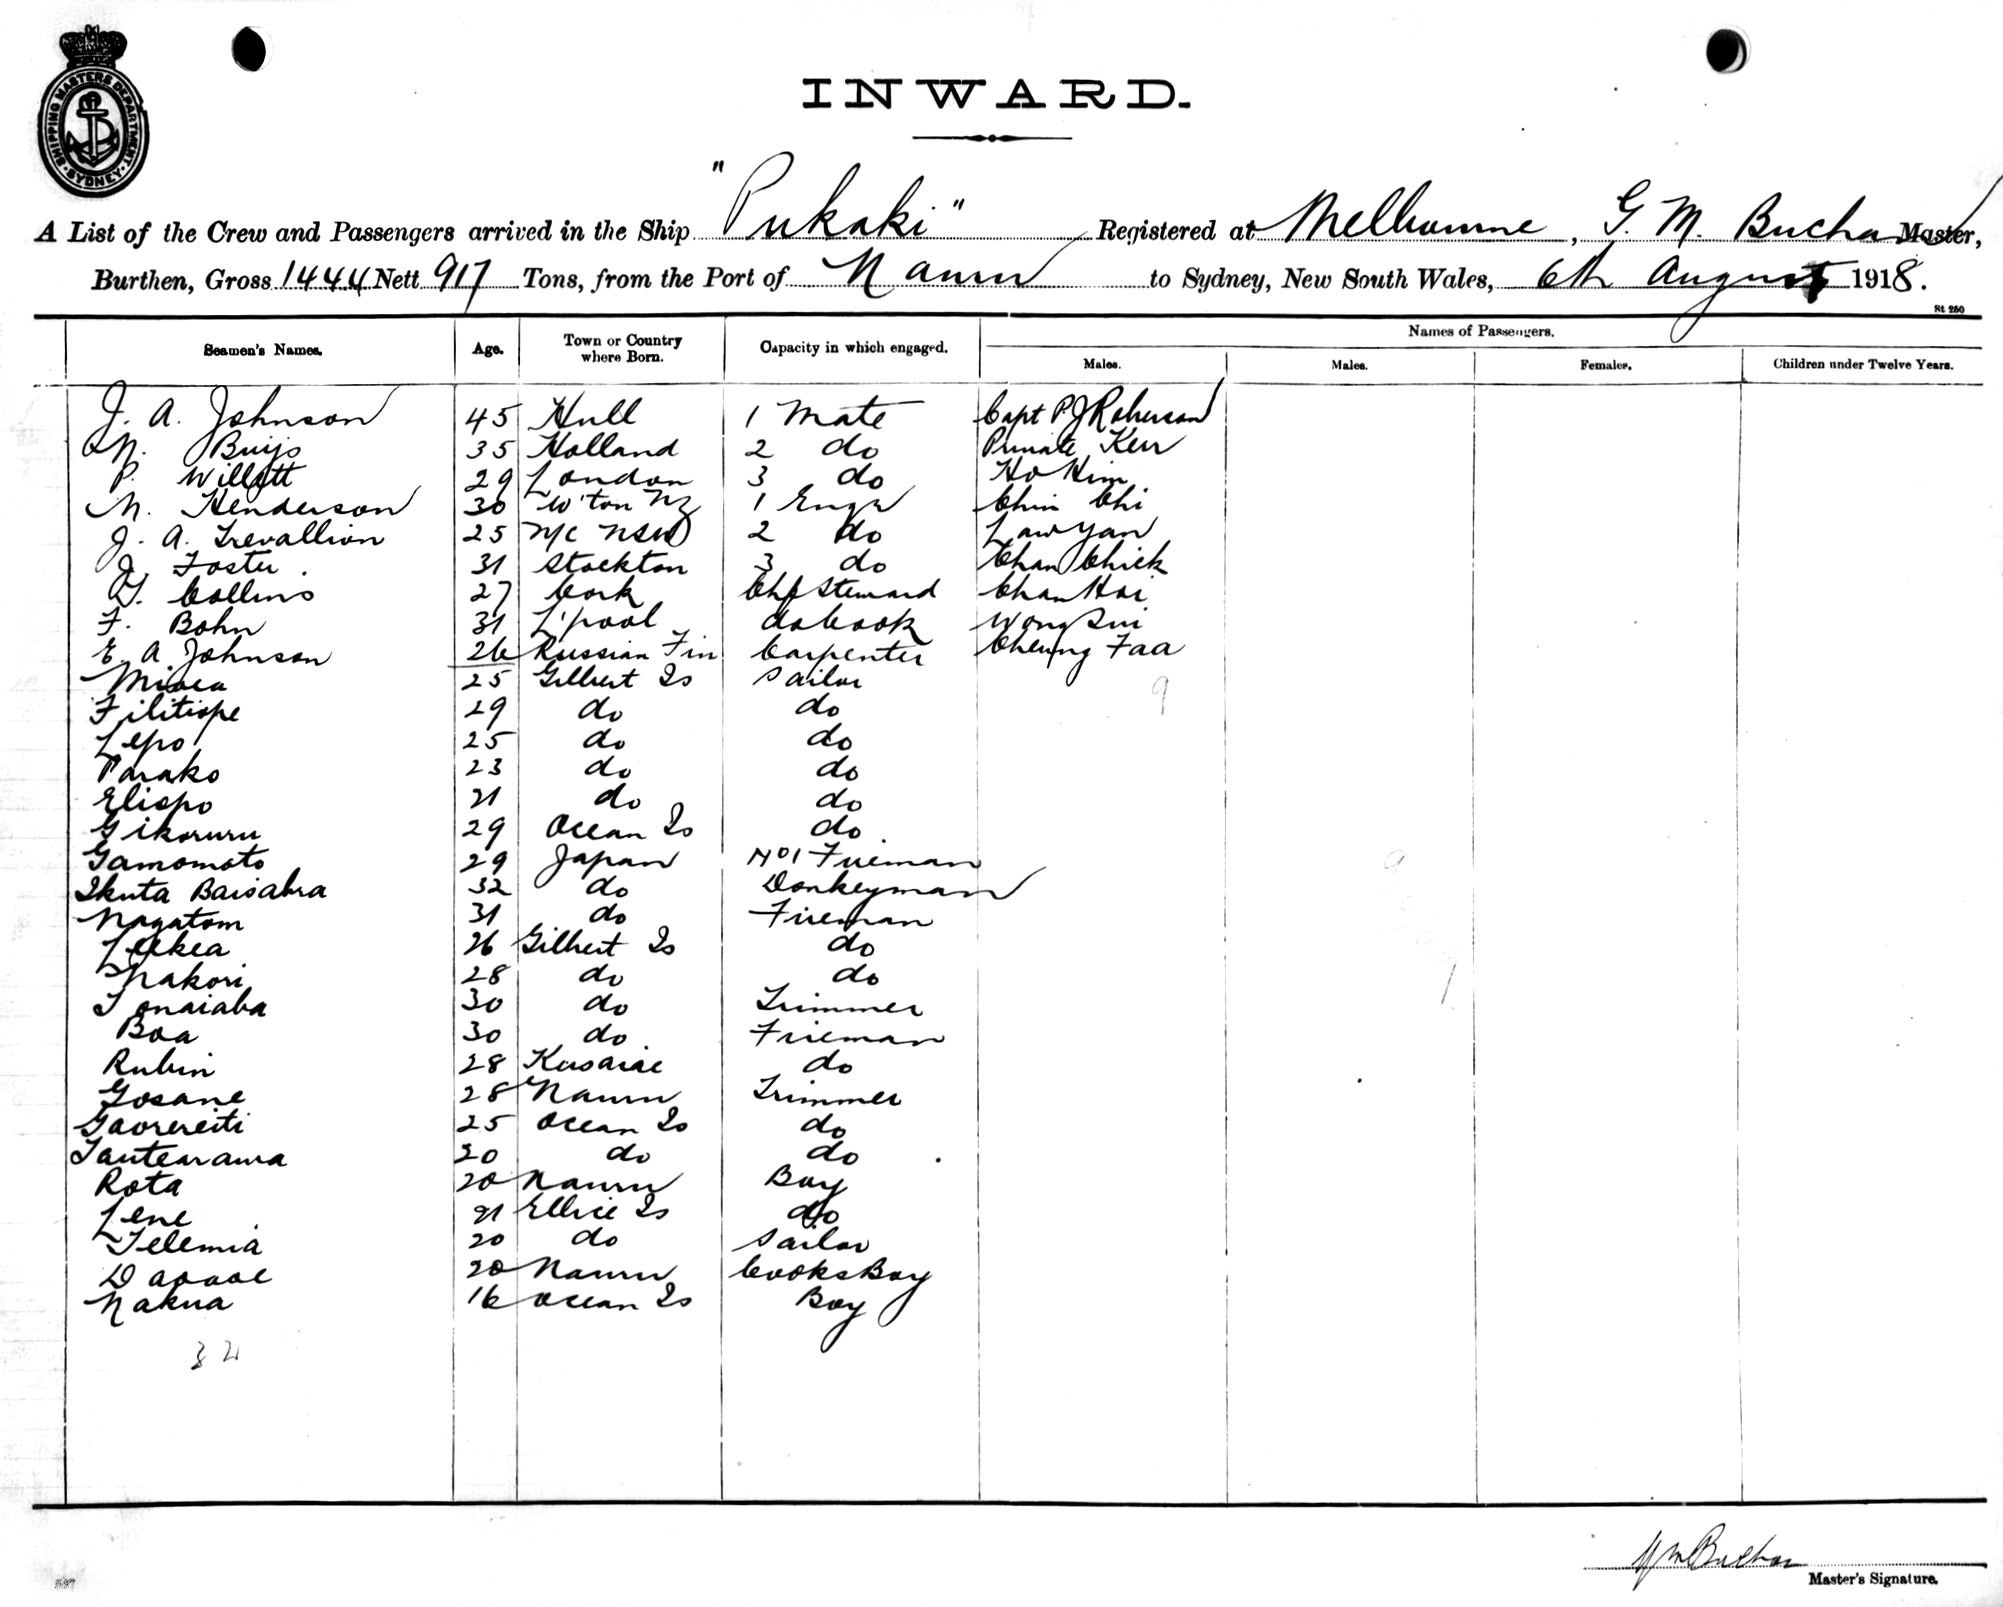 SHIPPING MASTERS DEPARTMENT · SYDNEY ·
INWARD.
A List of the Crew and Passengers arrived in the Ship "Pukaki" Registered at Melbourne, G. M. Buchan Master,
Burthen, Gross 1444 Nett 917 Tons, from the Port of Nauru to Sydney, New South Wales, 6th August 1918.
St 250
Seamen's Names. Age. Town or Country where Born. Capacity in which engaged. Names of Passengers.
Males. Males. Females. Children under Twelve Years.
J. A. Johnson 45 Hull 1 Mate Capt P. J Roberson
N. Buijs 35 Holland 2 do Private Kerr
P. Willott 29 London 3 do Ho Him
N. Henderson 30 W'ton NZ 1 Engr Chin Chi
J. A. Trevallion 25 N/C NSW 2 do Law Yan
J. Foster 31 Stockton 3 do Chan Chick
Collins 27 Cork Chf Steward Chan Hoi
F. Bohn 31 L'pool do Cook Wong Sui
E A. Johnson 26 Russian Fin Carpenter Cheung Faa
25 Gilbert Is Sailor
9
Filitiope 29 do do
Lepo 25 do do
Parako 23 do do
Elispo 21 do do
Gikoruru 29 Ocean Is do
Gamomoto 29 Japan No 1 Fireman
Ikuta Baisabra 32 do Donkeyman
Nagatom 31 do Fireman
Leekea 26 Gilbert Is do
Nakori 28 do do
Tonaiaba 30 do Trimmer
Boa 30 do Fireman
Rubin 28 Kusaiae do
Gosane 28 Nauru Trimmer
Gaorereiti 25 Ocean Is do
Tautearawa 30 do do
Rota 20 Nauru Boy
Lene 21 Ellice Is do
Telemia 20 do Sailor
20 Nauru Cooks Boy
Nakua 16 Ocean Is Boy
G M Buchan
Master's Signature.